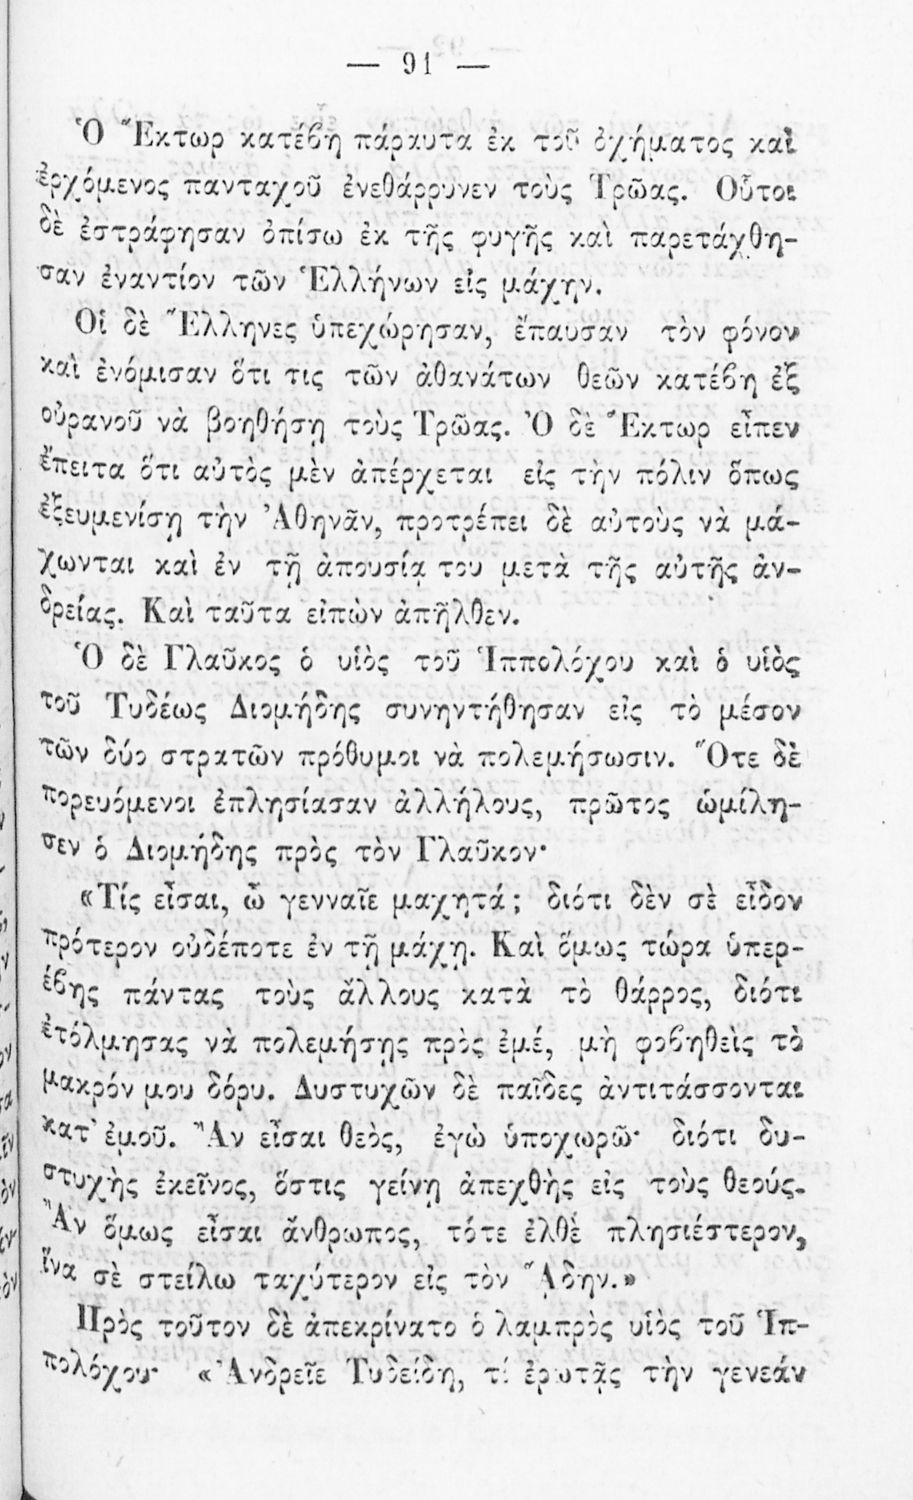 — 91 —
Ὁ Ἕκτωρ κατέβη πάραυτα ἐκ τοῦ ὀχήματος καὶ
ἐρχόμενος πανταχοῦ ἐνεθάρρυνεν τοὺς Τρῶας. Οὗτοι
δὲ ἐστράφησαν ὀπίσω ἐκ τῆς φυγῆς καὶ παρετάχθη-
σαν ἐναντίον τῶν Ἑλλήνων εἰς μάχην.
Οἱ δὲ Ἕλληνες ὑπεχώρησαν, ἔπαυσαν τὸν φόνον
καὶ ἐνόμισαν ὅτι τις τῶν ἀθανάτων θεῶν κατέβη ἐξ
οὐρανοῦ νὰ βοηθήσῃ τοὺς Τρῶας. Ὁ δὲ Ἕκτωρ εἶπεν
ἔπειτα ὅτι αὐτὸς μὲν ἀπέρχεται εἰς τὴν πόλιν ὅπως
ἐξευμενίσῃ τὴν Ἀθηνᾶν, προτρέπει δὲ αὐτοὺς νὰ μά-
χωνται καὶ ἐν τῇ ἀπουσίᾳ του μετὰ τῆς αὐτῆς ἀν-
δρείας. Καὶ ταῦτα εἰπὼν ἀπῆλθεν.
Ὁ δὲ Γλαῦκος ὁ υἱὸς τοῦ Ἱππολόχου καὶ ὁ υἱὸς
τοῦ Τυδέως Διομήδης συνηντήθησαν εἰς τὸ μέσον
τῶν δύο στρατῶν πρόθυμοι νὰ πολεμήσωσιν. Ὅτε δὲ
πορευόμενοι ἐπλησίασαν ἀλλήλους, πρῶτος ὡμίλη-
σεν ὁ Διομήδης πρὸς τὸν Γλαῦκον·
«Τίς εἶσαι, ὦ γενναῖε μαχητά; διότι δὲν σὲ εἶδον
πρότερον οὐδέποτε ἐν τῇ μάχῃ. Καὶ ὅμως τώρα ὑπερ-
έβης πάντας τοὺς ἄλλους κατὰ τὸ θάρρος, διότι
ἐτόλμησας νὰ πολεμήσῃς πρὸς ἐμέ, μὴ φοβηθεὶς τὸ
μακρόν μου δόρυ. Δυστυχῶν δὲ παῖδες ἀντιτάσσονται
κατ' ἐμοῦ. Ἂν εἶσαι θεὸς, ἐγὼ ὑποχωρῶ· διότι δυ-
στυχὴς ἐκεῖνος, ὅστις γείνῃ ἀπεχθὴς εἰς τοὺς θεούς.
Ἂν ὅμως εἶσαι ἄνθρωπος, τότε ἐλθὲ πλησιέστερον,
ἵνα σὲ στείλω ταχύτερον εἰς τὸν ᾍδην.»
Πρὸς τοῦτον δὲ ἀπεκρίνατο ὁ λαμπρὸς υἱὸς τοῦ Ἱπ-
πολόχου· «Ἀνδρεῖε Τυδείδη, τί ἐρωτᾷς τὴν γενεάν